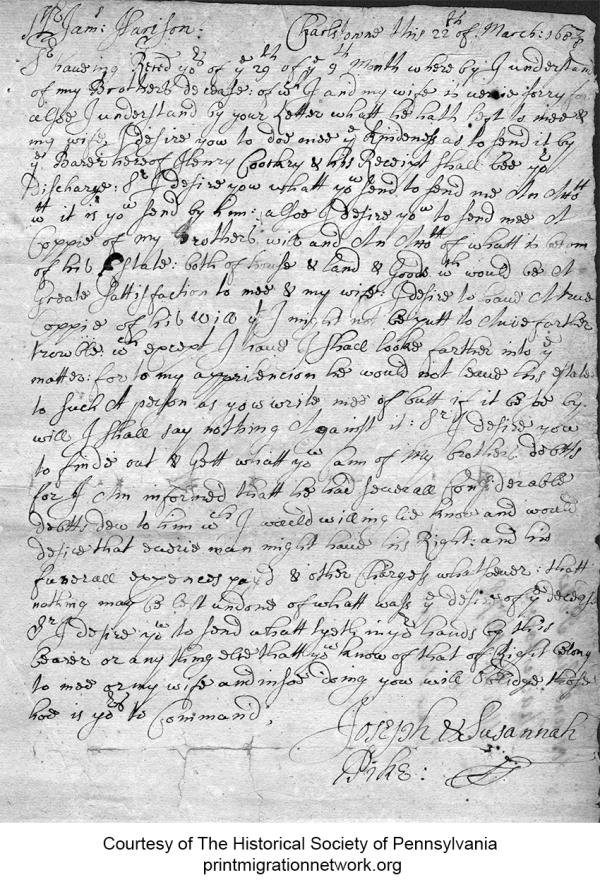 Jam:s Harison: Charlstowne this 22th of March: 1683
Sr haveing Reced yors of ye 29th of ye 9th Month where by I understan
of my Brothers decease: of wch I and my wife is verie sorry for
alsoe I understand by your Letter whatt he hath left to mee &
my wife I desire you to doe mee ye kindeness as to send it by
ye Barer hereof Henry & his Receipt shall bee yor
Discharge: Sr I desire you whatt you send to send me An Acctt
wtt it is you send by him: alsoe I desire you to send mee A
Coppie of my Brothers will and An Acctt of whatt is becom
of his Estate: both of house & Land & Goods wch would be A
Greate Sattisfaction to mee & my wife: I desire to have A true
Coppie of his Will yt I might not be putt to Anie farther
trowble: wch except I have I shall looke farther into ye
matter: for to my he would not leave his estate
to such A person as you write mee of butt if it be be by
will I shall say nothing Against it: Sr I desire you
to finde out & Gett whatt you can of My brothers debtts
for I Am informed thatt he had severall Considerable
debtts dew to him wch I would willinglie know and would
desire that everie man might have his Right: and his
funerall expences payd & other Charges whatt ever: thatt
nothing may be left undone of whatt wass ye desire of ye decesd
Sr I desire you to send whatt lyeth in yor hands by this
bearer or any thing else thatt you know of that of Right belong
to mee or my wife and in soe doing you will oblidge those
hoe is yors to Command,
Joseph & Susannah
Pike:
Courtesy of The Historical Society of Pennsylvania
printmigrationnetwork.org